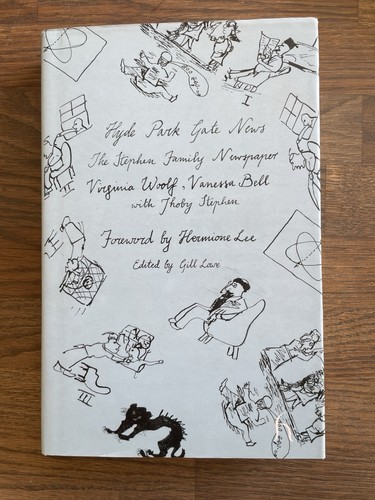 I
Hyde Park Gate News
The Stephen Family Newspaper
Virginia Woolf, Vanessa Bell
with Thoby Stephen
Foreword by Hermione Lee
Edited by Gill Lowe
III